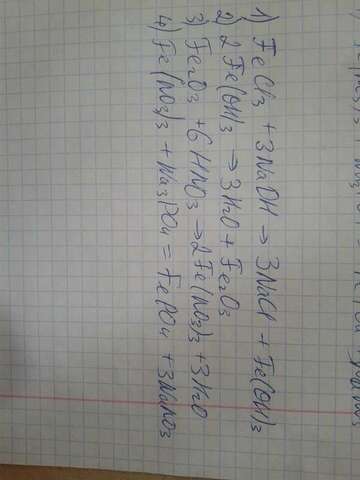 1) FeCl3 + 3NaOH → 3NaCl + Fe(OH)3
2) 2Fe(OH)3 → 3H2O + Fe2O3
3) Fe2O3 + 6HNO3 → 2Fe(NO3)3 + 3H2O
4) Fe(NO3)3 + Na3PO4 = FePO4 + 3NaNO3